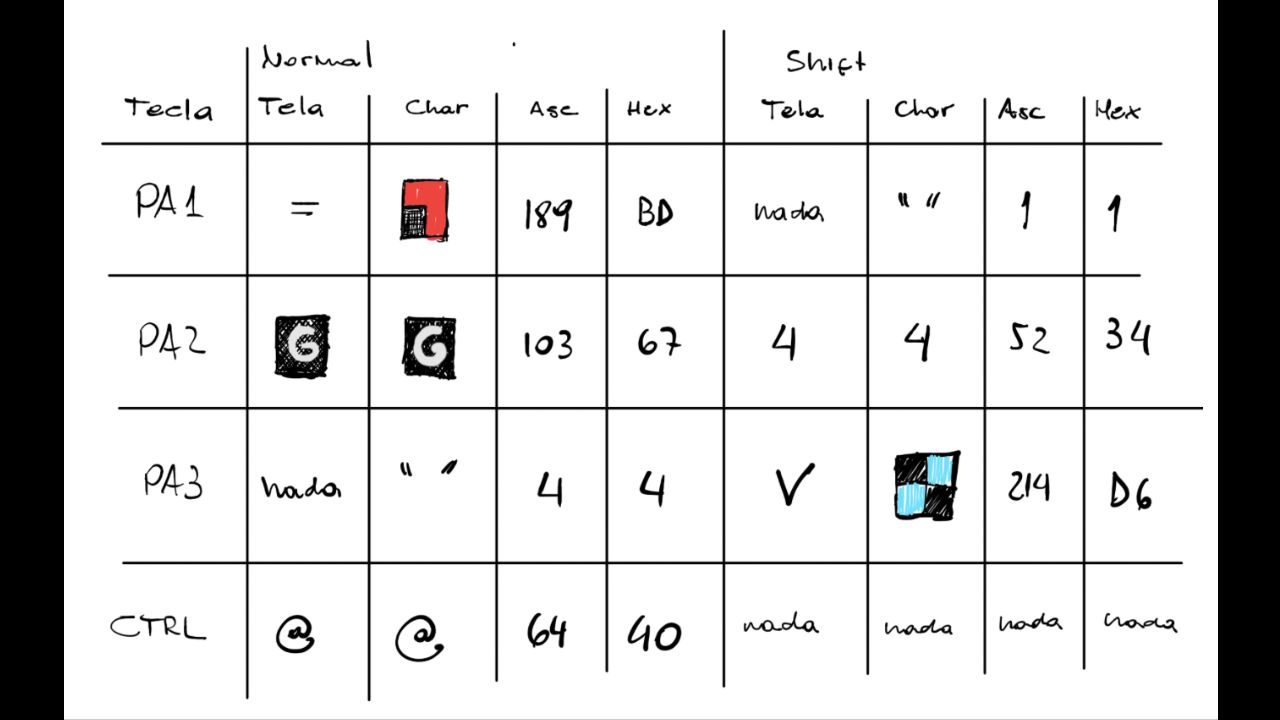 Normal Shift
Tecla Tela Char Asc Hex Tela Char Asc Hex
PA1 = 189 BD nada " " 1 1
PA2 G G 103 67 4 4 52 34
PA3 nada " " 4 4 V 214 D6
CTRL @ @ 64 40 nada nada nada nada